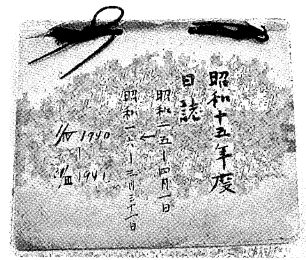 昭和十五年度
日誌
昭和一五年四月一日
昭和一六年三月三十一日
1/Ⅳ 1940
31/Ⅲ 1941